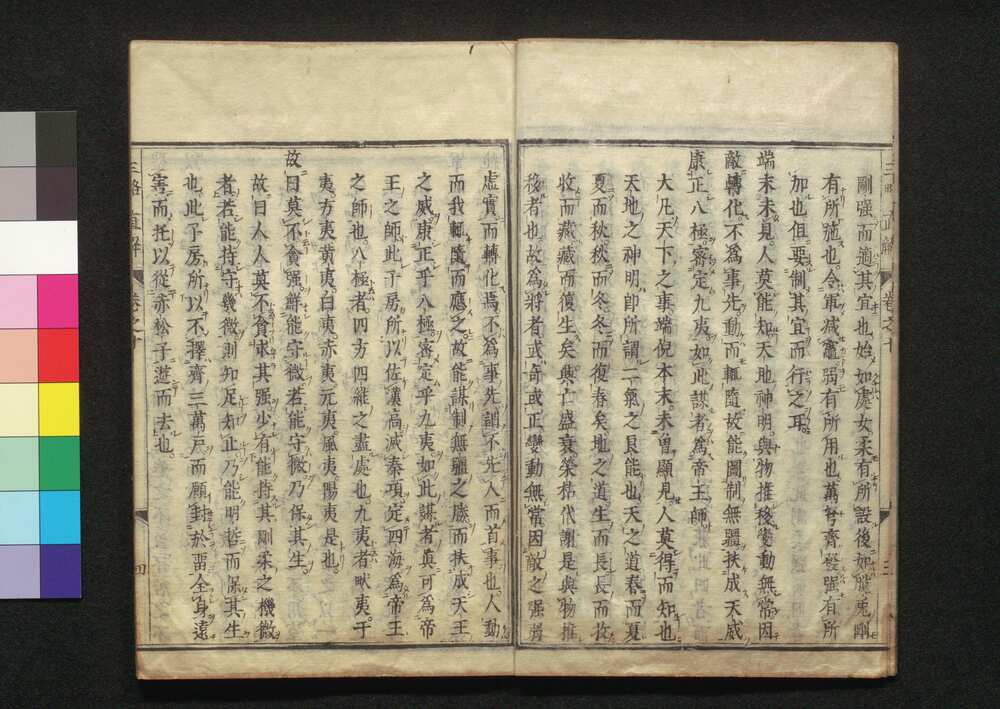 剛强而適其宜也始如處女柔有所設後如脫兎剛
有所施也令軍减竈弱有所用也萬弩齊發强有所
加也但要制其宜而行之耳
端末未見人莫能知天地神明與物推移變動無常因
敵轉化不爲事先動而輒隨故能圖制無疆扶成天威
康正八極密定九夷如此謀者爲帝王師
大凡天下之事端倪本末未曽顯見人莫得而知也
天地之神明卽所謂二氣之良能也天之道春而夏
夏而秋秋而冬冬而復春矣地之道生而長長而收
收而藏藏而復生矣興亡盛衰榮枯代謝是與物推
移者也故爲將者或奇或正變動無常因敵之强弱
虛實而轉化焉不爲事先謂不先人而首事也人動
而我輒隨而應之故能謀制無疆之勝而扶成天王
之威康正乎八極密定乎九夷如此謀者眞可爲帝
王之師此子房所以佐漢高滅秦項定四海爲帝王
之師也八極者四方四維之盡處也九夷者畎夷于
夷方夷黄夷白夷赤夷元夷風夷陽夷是也
故曰莫不貪强鮮能守微若能守微乃保其生
故曰人人莫不貪求其强少有能持其剛柔之機微
者若能持守幾微則知足知止乃能明哲而保其生
也此子房所以不擇齊三萬戸而願封於畱全身遠
害而托以從赤松子遊而去也
三略直解
卷之下
三
三略直解
卷之下
四